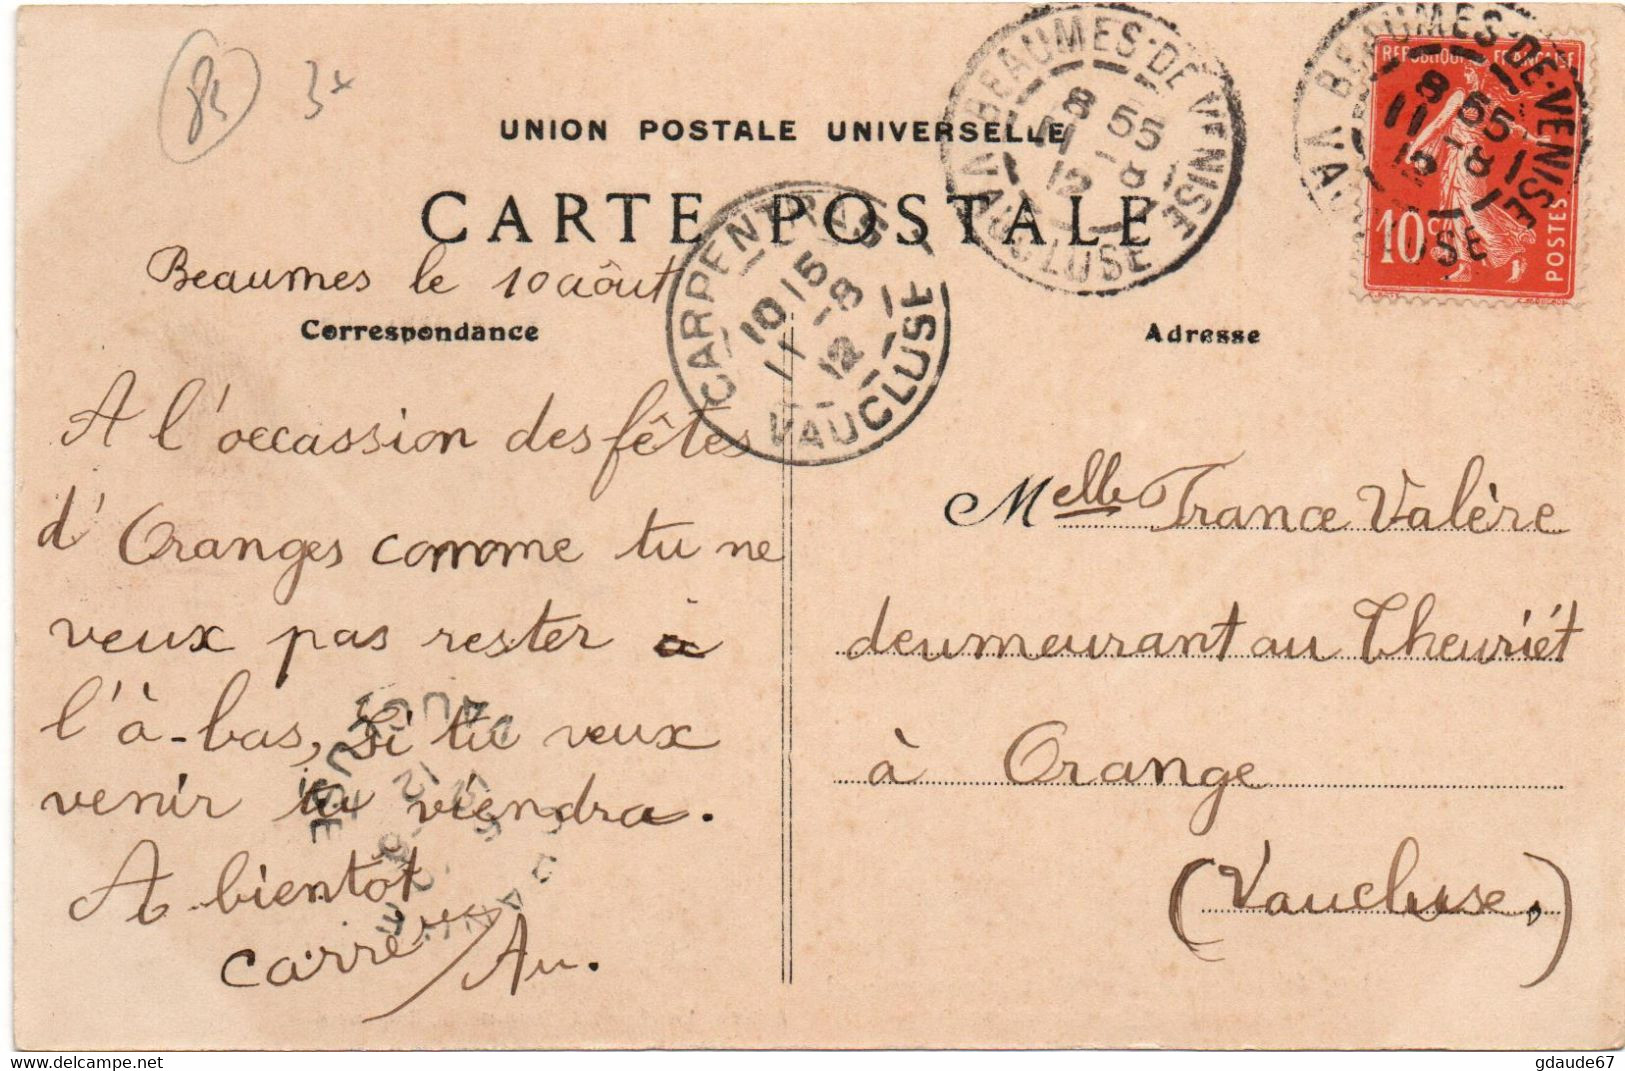 84 3x
UNION POSTALE UNIVERSELLE
CARTE POSTALE
BEAUMES-DE-VENISE
VAUCLUSE
8 55
11 - 8
12
BEAUMES-DE-VENISE
VAUCLUSE
8 55
11 - 8
12
REPUBLIQUE FRANÇAISE
10 c
POSTES
CARPENTRAS
VAUCLUSE
10 15
11 - 8
12
Beaumes le 10 aôut
Correspondance
A l'occassion des fêtes
d'Oranges comme tu ne
veux pas rester à
l'à-bas, Si tu veux
venir tu viendra.
A bientôt
Carrère Au.
Adresse
Melle France Valère
deumeurant au Theuriét
à Orange
(Vaucluse.)
delcampe.net
gdaude67